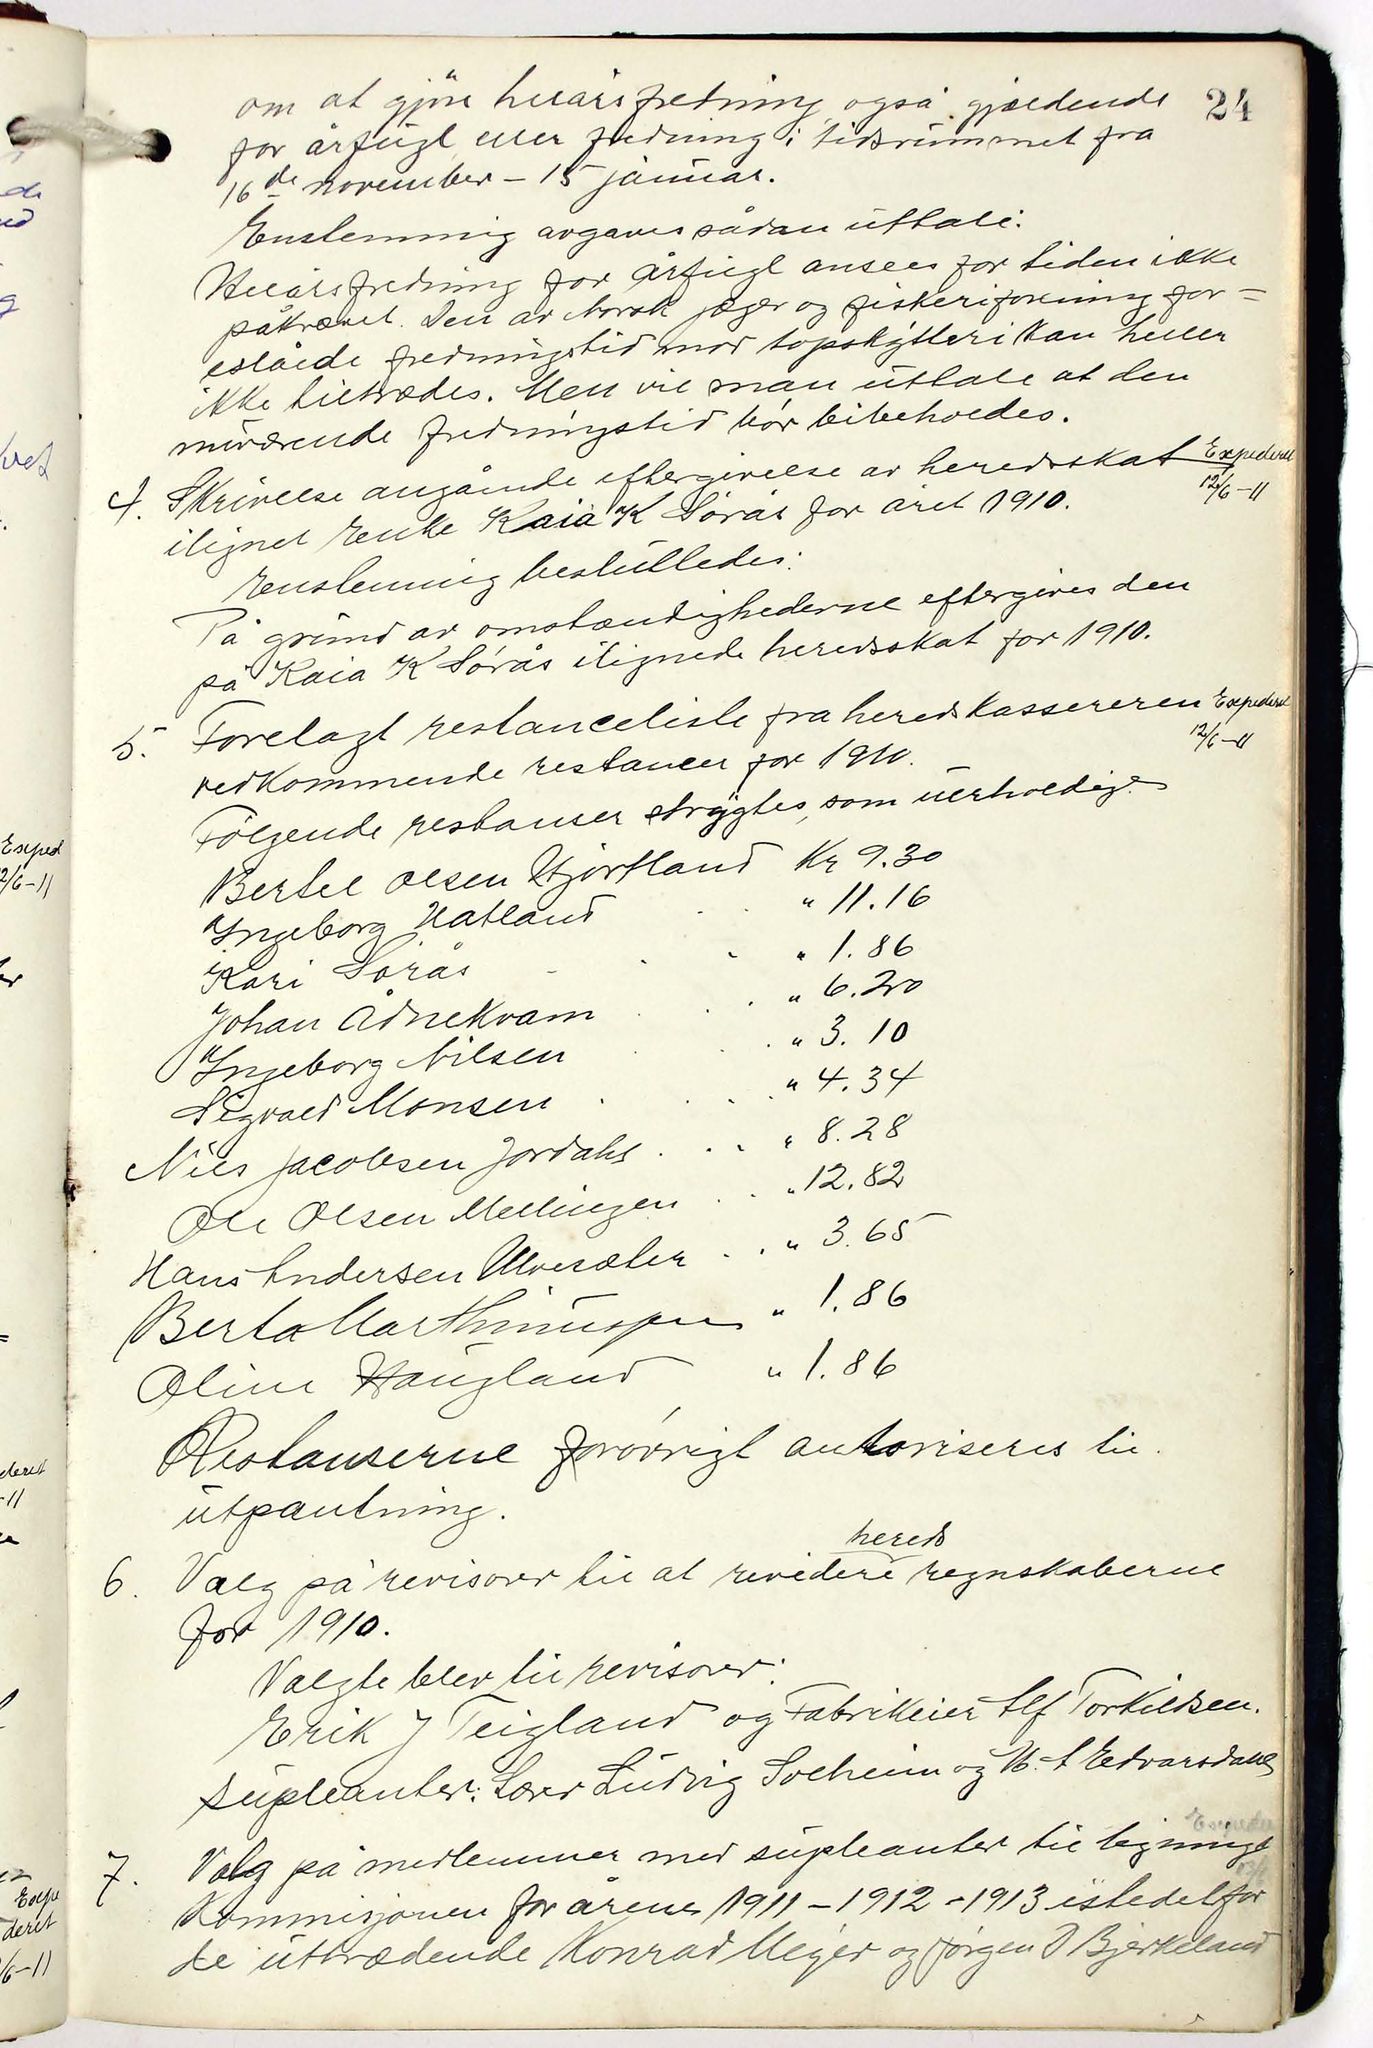 24
om at gjöre helårsfredning også gjældende
for årfugl eller fredning i tidsrummet fra
16de november – 15 januar.
Enstemmig avgaves sådan uttale:
Helårsfredning for årfugl ansees for tiden ikke
påkrævet. Den av Norsk jæger og fiskeriforening for=
eslåede fredningstid mod topskytteri kan heller
ikke tiltrædes. Men vil man uttale at den
nuværende fredningstid bör bibeholdes.
4. Skrivelse angående eftergivelse av heredsskat Expederet
12/6-11
ilignet Enke Kaia K Sörås for året 1910.
Enstemmig besluttedes:
På grund av omstændighederne eftergives den
på Kaia K Sörås ilignede heredsskat for 1910.
5. Forelagt restanceliste fra heredskassereren Expederet
12/6-11
vedkommende restancer for 1910.
Fölgende restanser strygtes, som uerholdige
Bertel Olsen Hjörtland Kr 9.30
Ingeborg Hatland . . " 11.16
Kari Sörås - . . " 1.86
Johan Ådnekvam . . . " 6.20
Ingeborg Nilsen . . . " 3.10
Sigvald Monsen . . . . " 4.34
Nils Jacobsen Jordahl . . . " 8.28
Ole Olsen Mellingen . . . " 12.82
Hans Andersen Ulvesæter . . " 3.65
Berta Marthinuspen " 1.86
Oline Haugland " 1.86
Restanserne forövrigt autoriseres til
utpantning.
6. Valg på revisorer til at revidere hereds regnskaberne
for 1910.
Valgte blev til revisorer:
Erik J Teigland og Fabrikeier Alf Torkildsen.
Supleanter: Lærer Ludvig Solheim og N. A Edvarsdahl
Expeder
7. Valg på medlemmer med supleanter til lignings
kommisjonen for årene 1911 – 1912 - 1913 istedetfor
de uttrædende Konrad Meyer og Jörgen J Bjerkeland
Exped
12/6-11
deret
-11
Expe
deret
/6-11